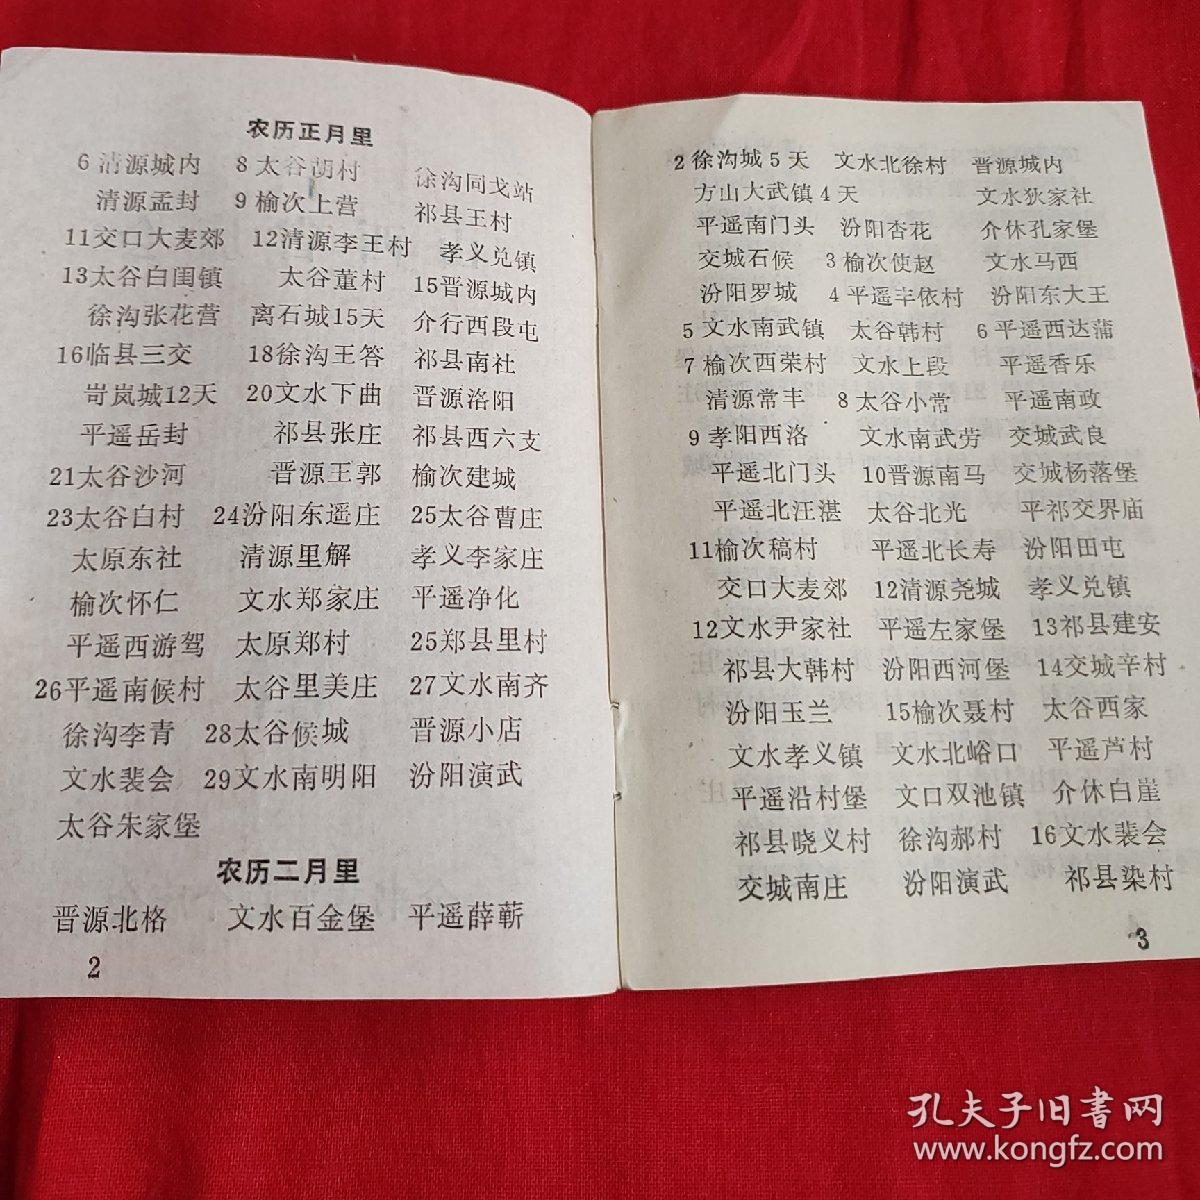 农历正月里
6 清源城内 8 太谷胡村 徐沟同戈站
清源孟封 9 榆次上营 祁县王村
11交口大麦郊 12清源李王村 孝义兑镇
13太谷白闺镇 太谷董村 15晋源城内
徐沟张花营 离石城15天 介行西段屯
16临县三交 18徐沟王答 祁县南社
岢岚城12天 20文水下曲 晋源洛阳
平遥岳封 祁县张庄 祁县西六支
21太谷沙河 晋源王郭 榆次建城
23太谷白村 24汾阳东遥庄 25太谷曹庄
太原东社 清源里解 孝义李家庄
榆次怀仁 文水郑家庄 平遥净化
平遥西游驾 太原郑村 25郑县里村
26平遥南候村 太谷里美庄 27文水南齐
徐沟李青 28太谷候城 晋源小店
文水裴会 29文水南明阳 汾阳演武
太谷朱家堡
农历二月里
晋源北格 文水百金堡 平遥薛蕲
2
2 徐沟城5天 文水北徐村 晋源城内
方山大武镇4天 文水狄家社
平遥南门头 汾阳杏花 介休孔家堡
交城石候 3 榆次使赵 文水马西
汾阳罗城 4 平遥丰依村 汾阳东大王
5 文水南武镇 太谷韩村 6 平遥西达蒲
7 榆次西荣村 文水上段 平遥香乐
清源常丰 8 太谷小常 平遥南政
9 孝阳西洛 文水南武劳 交城武良
平遥北门头 10晋源南马 交城杨落堡
平遥北汪湛 太谷北光 平祁交界庙
11榆次稿村 平遥北长寿 汾阳田屯
交口大麦郊 12清源尧城 孝义兑镇
12文水尹家社 平遥左家堡 13祁县建安
祁县大韩村 汾阳西河堡 14交城辛村
汾阳玉兰 15榆次聂村 太谷西家
文水孝义镇 文水北峪口 平遥芦村
平遥沿村堡 文口双池镇 介休白崖
祁县晓义村 徐沟郝村 16文水裴会
交城南庄 汾阳演武 祁县染村
3
孔夫子旧书网
www.kongfz.com